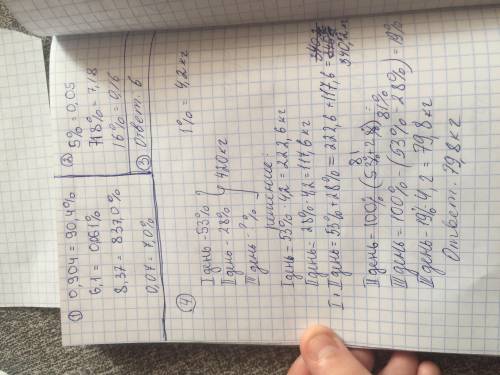 ① 0,904 = 90,4%
6,1 = 0,061%
8,37 = 837,0%
0,07 = 7,0%
② 5% = 0,05
718% = 7,18
16% = 0,16
③ Ответ: в
④
I день - 53%
II день - 28% } 420 кг
III день - ?%
1% = 4,2 кг
решение:
I день = 53% · 4,2 = 222,6 кг
II день = 28% · 4,2 = 117,6 кг
I и II день = 53% + 28% = 222,6 + 117,6 = 340,2 кг
III день = 100% - (53% + 28%) 81%
III день = 100% - (53% - 28%) = 19%
III день = 19% · 4,2 = 79,8 кг
Ответ: 79,8 кг